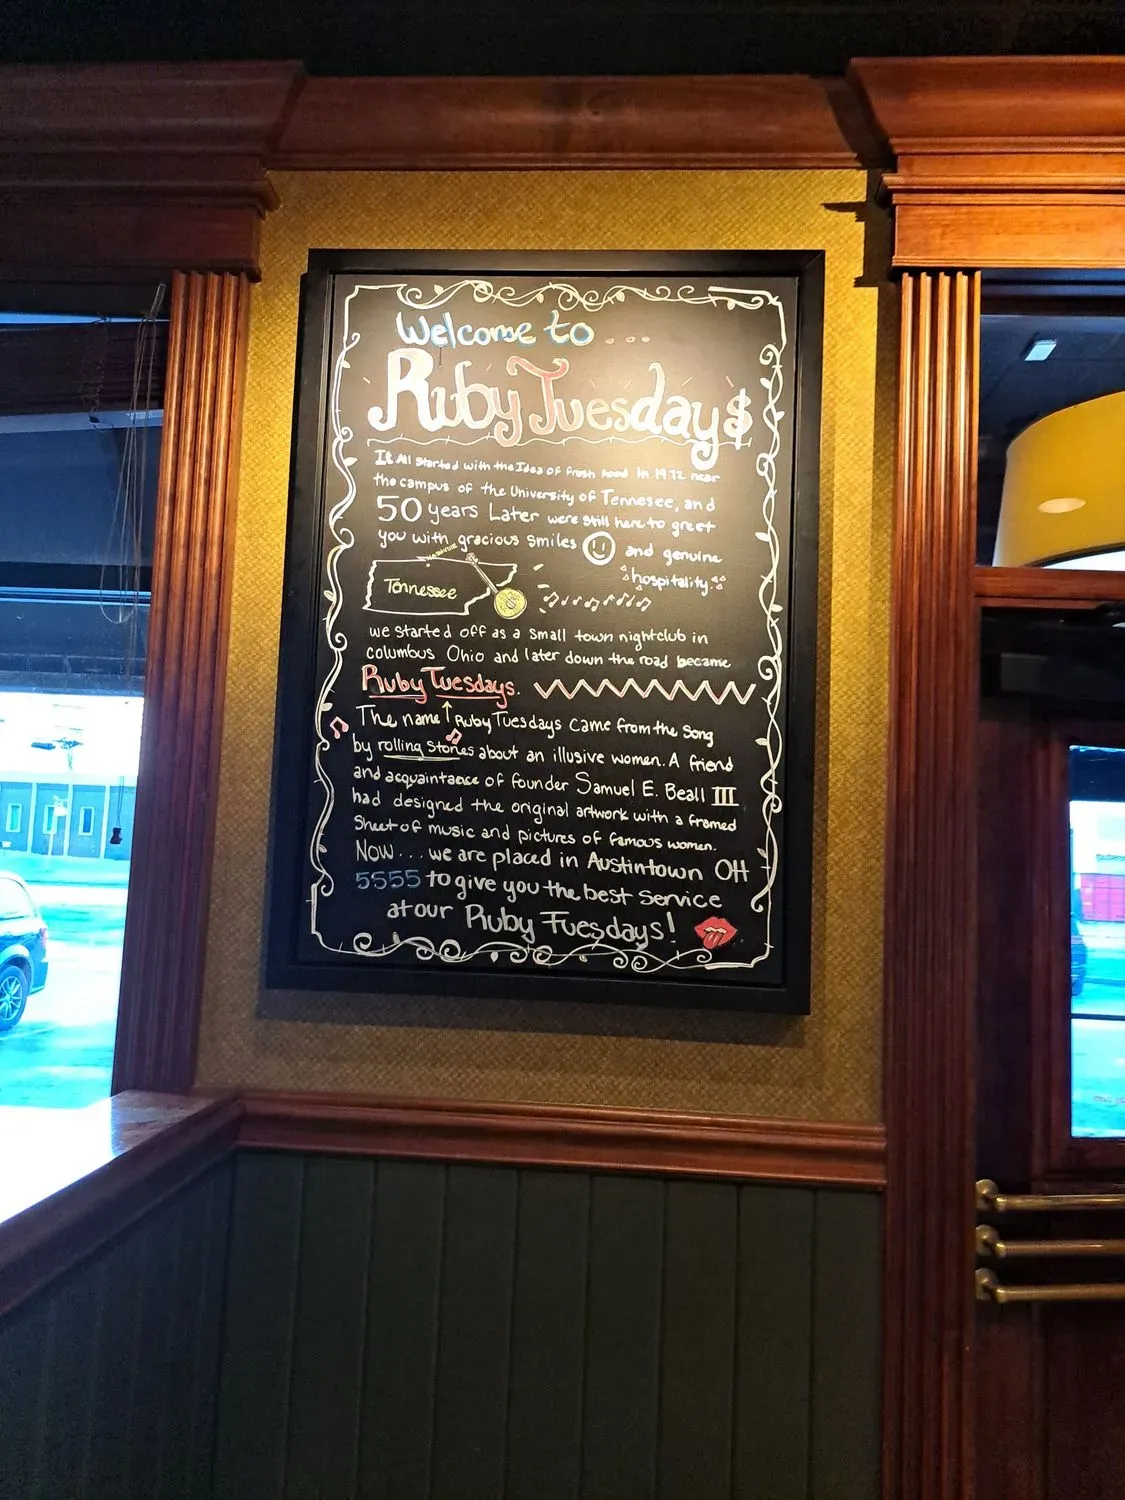 Welcome to ...
Ruby Tuesday$
It All Started with the Idea of fresh food In 1972 near
the campus of the University of Tennesee, and
50 years Later were still here to greet
you with gracious smiles and genuine
hospitality.
Nashville
Tennessee
we started off as a small town nightclub in
columbus Ohio and later down the road became
Ruby Tuesdays.
The name ↑ Ruby Tuesdays came from the song
by rolling stones about an illusive women. A friend
and acquaintance of founder Samuel E. Beall III
had designed the original artwork with a framed
Sheet of music and pictures of famous women.
Now... we are placed in Austintown OH
5555 to give you the best service
at our Ruby Tuesdays!